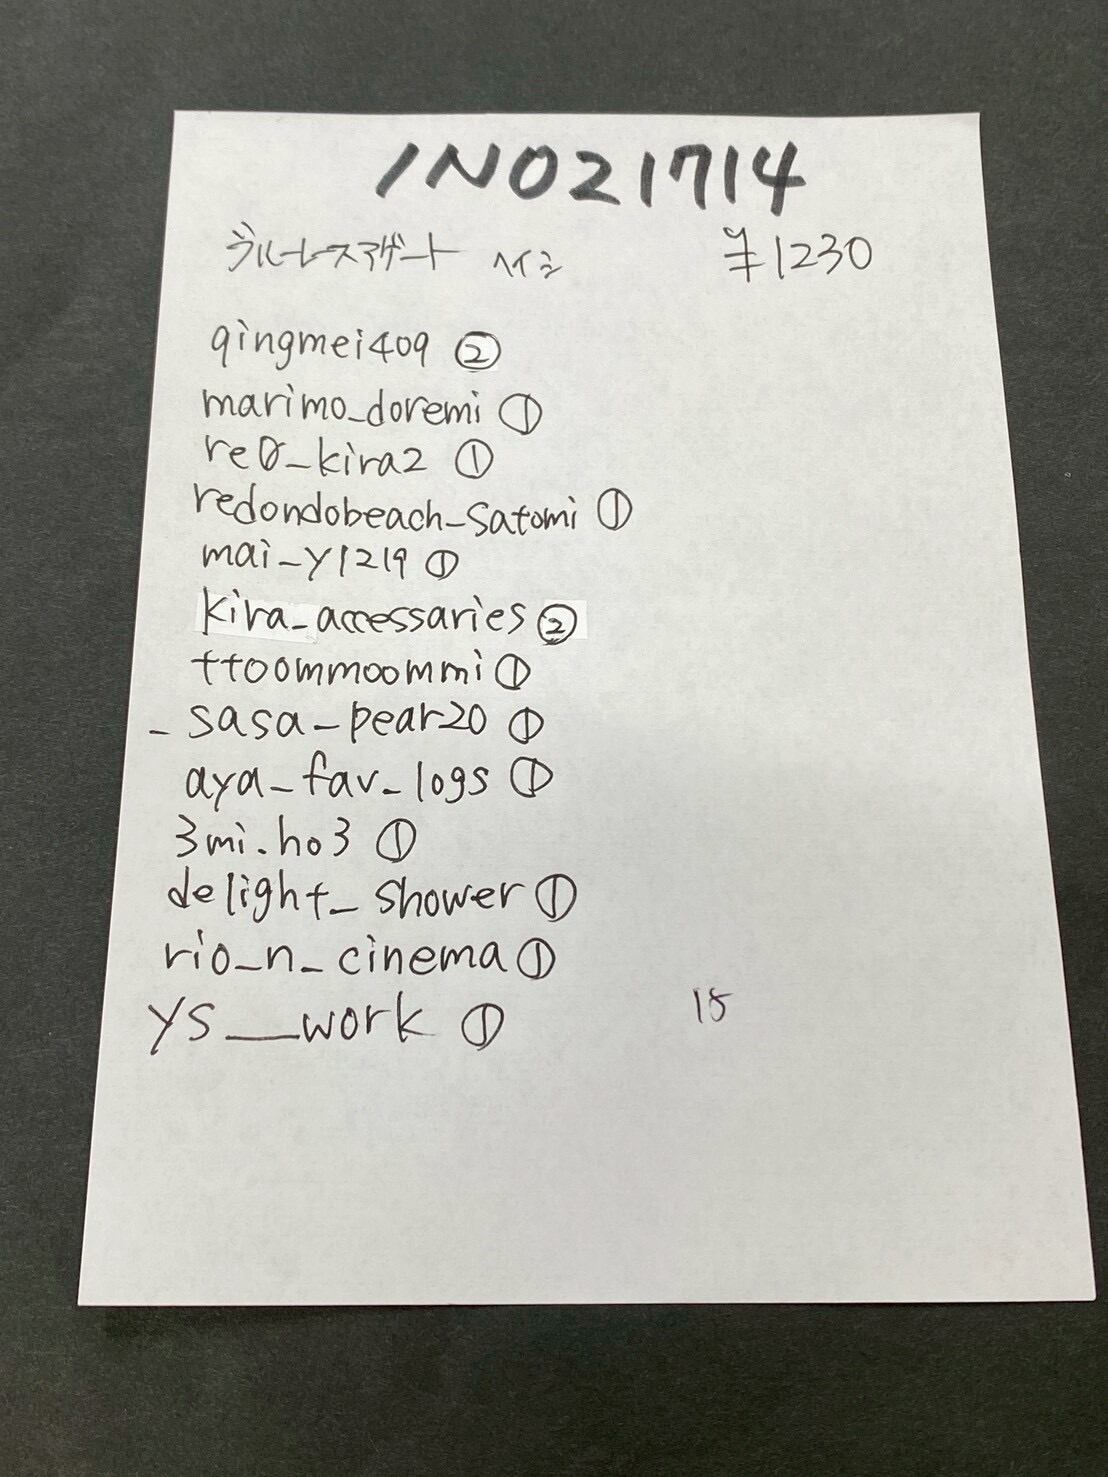 INO21714
ブルーレースアゲート ヘイシ ¥1230
qingmei409 ②
marimo_doremi ①
re0_kira2 ①
redondobeach_satomi ①
mai_y1219 ①
kira_accessaries ②
ttoommoommi ①
_sasa_pear20 ①
aya_fav_logs ①
3mi.ho3 ①
delight_shower ①
rio_n_cinema ①
ys__work ①
15